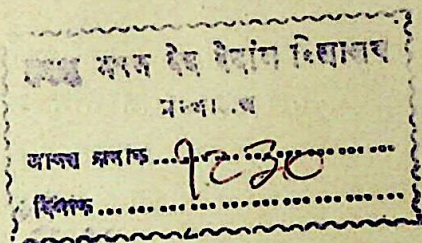 भवन वेद वेदांग विद्यालय
आगत क्रमांक.... १८३०
दिनांक....